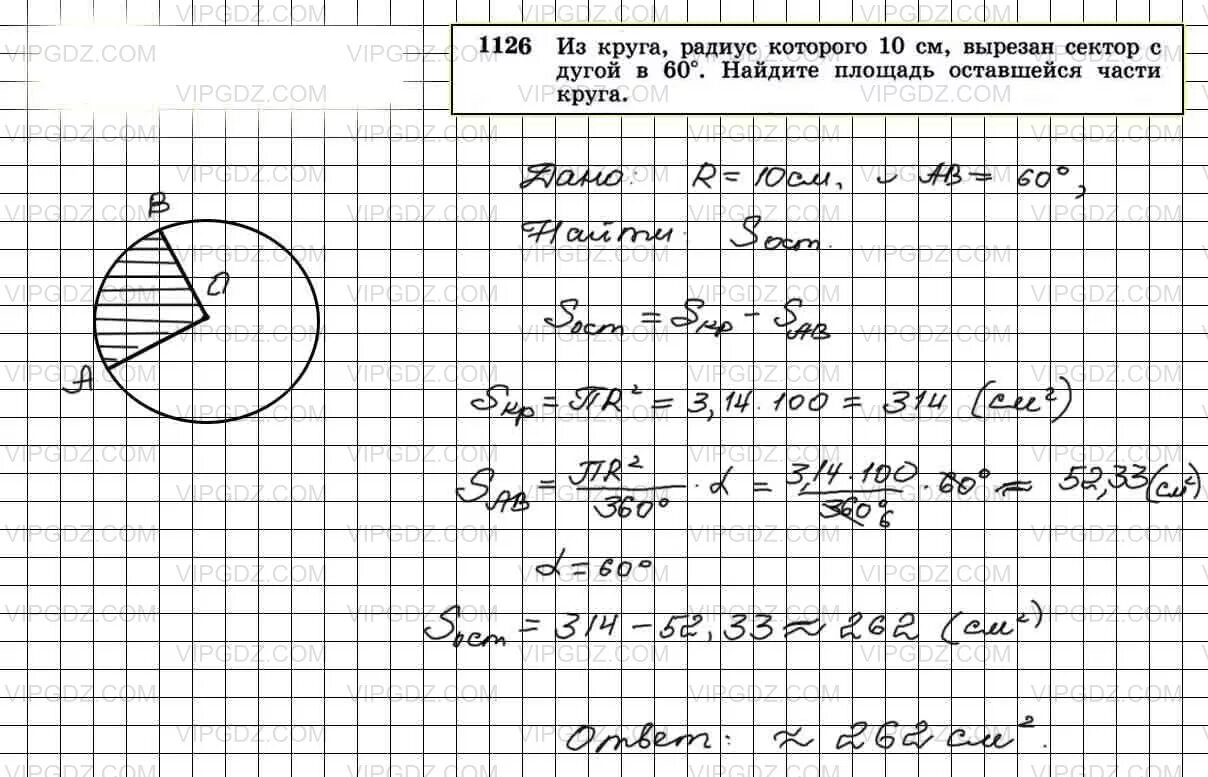 1126 Из круга, радиус которого 10 см, вырезан сектор с
дугой в 60°. Найдите площадь оставшейся части
круга.
Дано: R = 10 см, ◡ AB = 60°,
Найти: Sост.
B
O
A
Sост = Sкр - SAB
Sкр = ПR² = 3,14 · 100 = 314 (см²)
SAB = ПR²/360° · α = 3,14 · 100/360° 6 · 60° ≈ 52,33 (см²)
α = 60°
Sост = 314 - 52,33 ≈ 262 (см²)
Ответ: ≈ 262 см².
VIPGDZ.COM